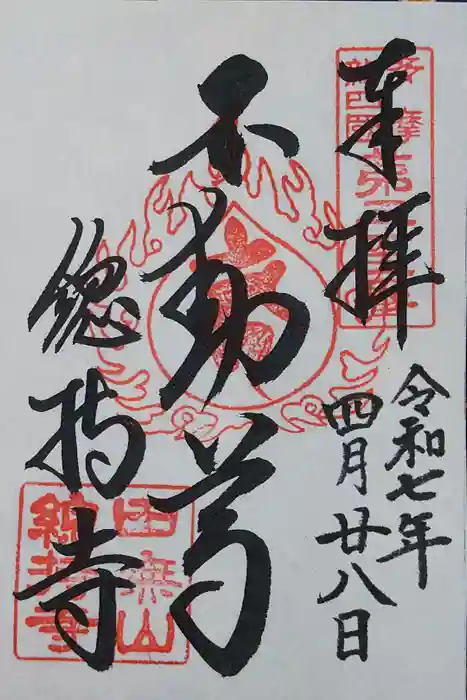 奉拝
令和七年
四月廿八日
不動尊
總持寺
田無山
總持寺